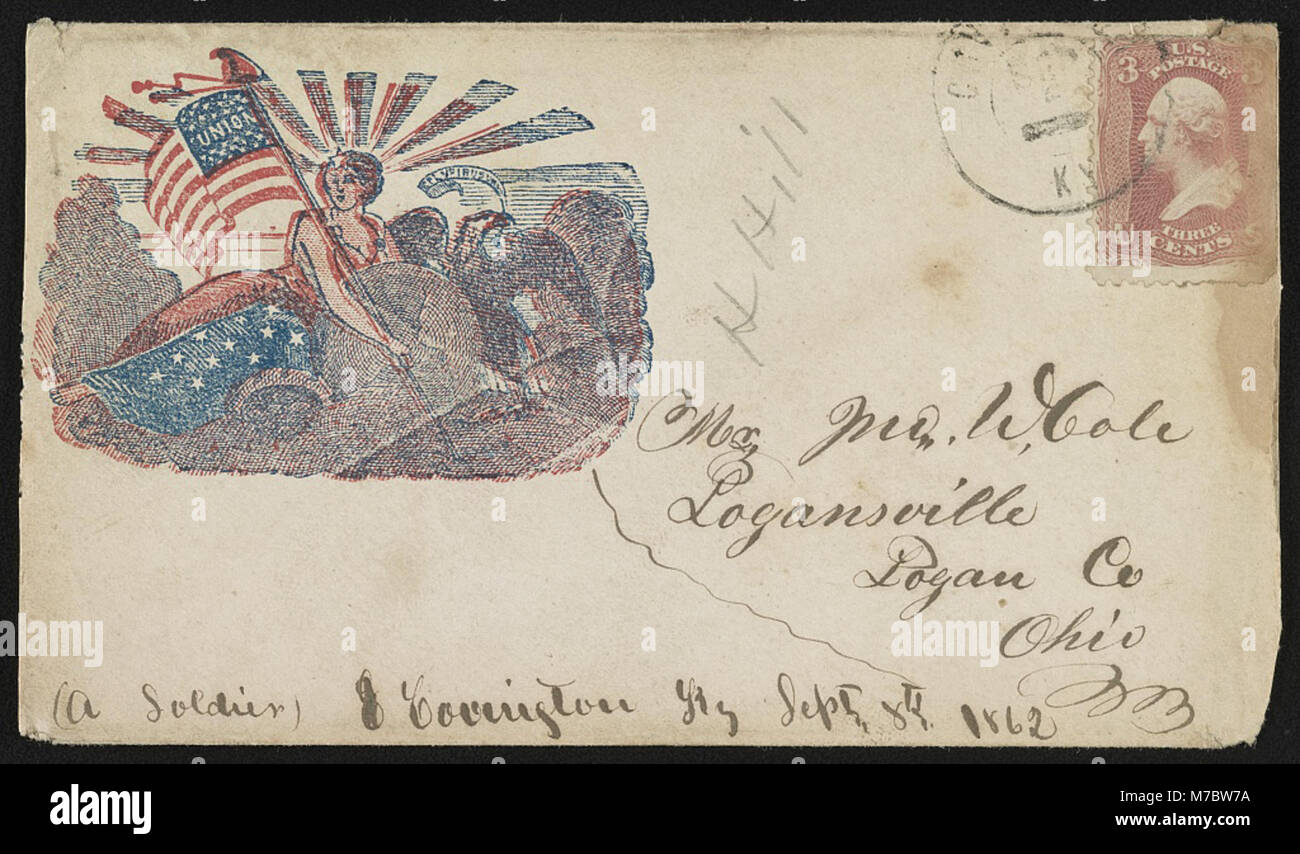 UNION
U.S.
POSTAGE
3 3
THREE
CENTS
KY
H Hill
Mr. Jno. W. Cole
Logansville
Logan Co
Ohio
(A Soldier) Covington Ky Sept 8th 1862
alamy
alamy
Image ID: M7BW7A
www.alamy.com